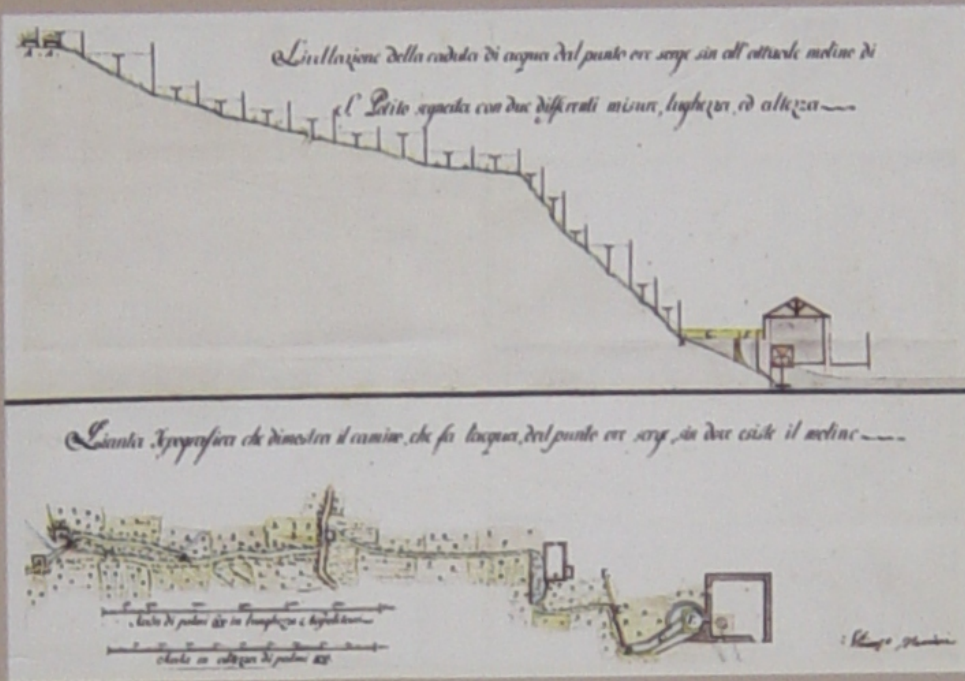 Livellazione della caduta di acqua dal punto ove sorge sin all'attuale moline di
Potito segnata con due differenti misure, lughezza, ed altezza
Pianta Topografica che dimostra il camino, che fa l'acqua, dal punto ove sorge, sin dove esiste il moline
Scala di palmi in lunghezza
Scala in altezza di palmi